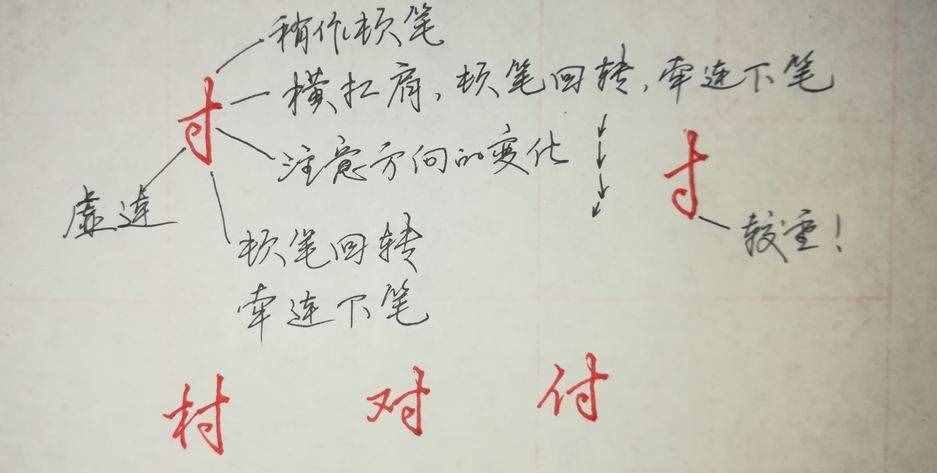 稍作顿笔
寸
横扛肩,顿笔回转,牵连下笔
注意方向的变化
寸
虚连
较重!
顿笔回转
牵连下笔
村 对 付